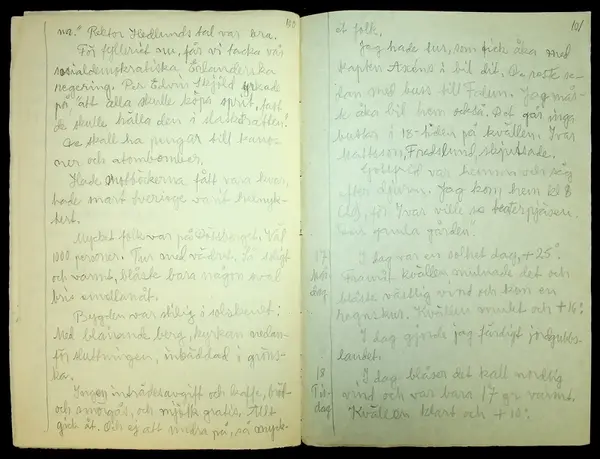 100
na." Rektor Hedlunds tal var bra.
För fylleriet nu, får vi tacka vår
socialdemokratiska Erlanderska
regering. Per Edvin Sköld yrkade
på att alla skulle köpa sprit, fast
de skulle hälla den i slaskhatten!
De skall ha pengar till kano-
ner och atombomber.
Hade motböckerna fått vara kvar,
hade snart Sverige varit helnyk-
tert.
Mycket folk var på Väl
1000 personer. Tur med vädret. Så soligt
och varmt, blåste bara någon sval
bris emellanåt.
Bygden var stilig i solskenet:
Med blånande berg, kyrkan nedan-
för sluttningen, inbäddad i gröns-
ka.
Ingen inträdesavgift och kaffe, bröd
och smörgås, och mjölk gratis. Allt
gick åt. Och ej att undra på, så myck-
101
et folk.
Jag hade tur, som fick åka med
kapten Axéns i bil dit. De reste se-
dan med buss till Jag mås-
te åka bil hem också. Det går inga
bussar i 18-tiden på kvällen. Ivar
Matteson, Fredslund skjutsade.
Gottfrid var hemma och såg
efter djuren. Jag kom hem kl 8
för Ivar ville se teaterpjäsen.
Den gamla gården.
17 I dag var en solhet dag, +25°.
Framåt kvällen mulnade det och
dag blåste västlig vind och kom en
regnskur. Kvällen mulet och +16°.
I dag gjorde jag färdigt jordgubbs-
landet.
18 I dag blåser det kall nordlig
Tis- vind och var bara 17 gr varmt.
dag Kvällen klart och +10°.